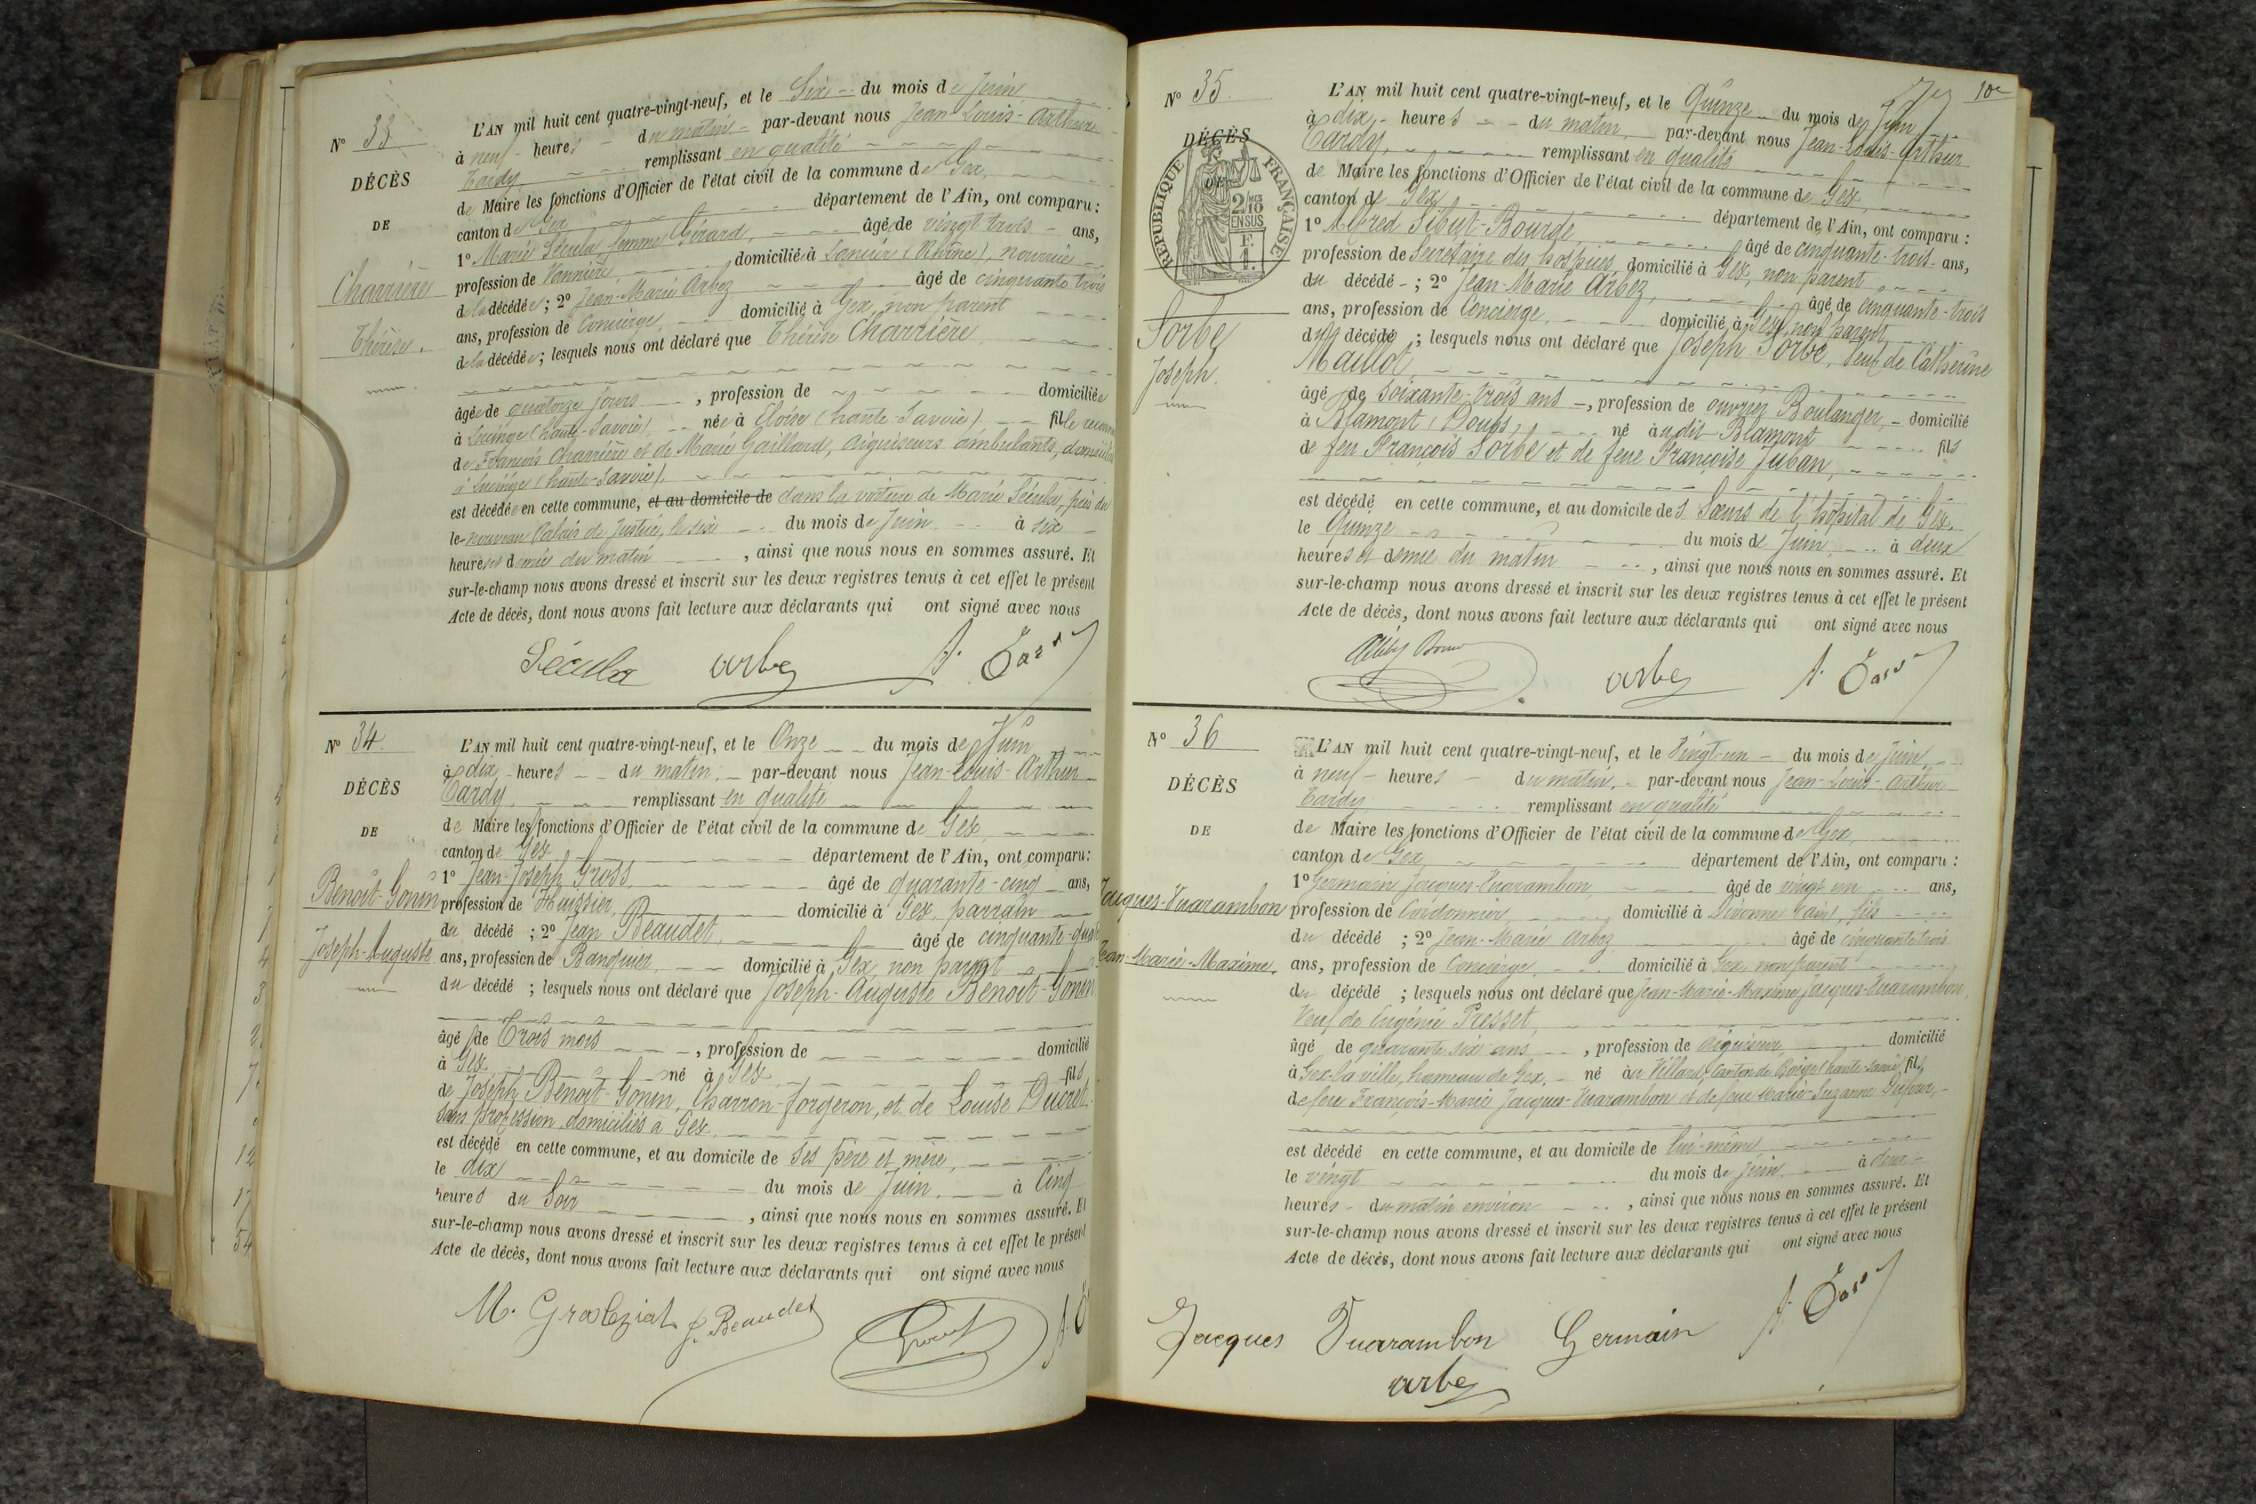 N° 33
DÉCÈS
DE
Charrière
Thérèse.
L'AN mil huit cent quatre-vingt-neuf, et le Six du mois de Juin
à neuf heures du matin par-devant nous Jean-Louis-Arthur
Tardy, remplissant en qualité
de Maire les fonctions d'Officier de l'état civil de la commune de Gex,
canton de Gex département de l'Ain, ont comparu :
1° Marie Sécula, femme Gérard, âgée de vingt trois ans,
profession de Vannière, domiciliée à (Rhône), nourrice
de la décédée ; 2° Jean-Marie Arbez âgé de cinquante trois
ans, profession de Concierge, domicilié à Gex, non parent
de la décédée ; lesquels nous ont déclaré que Thérèse Charrière
âgée de quatorze jours, profession de domiciliée
à Lucinge (haute-Savoie), née à Eloise (haute-Savoie) fille
de François Charrière et de Marie Gaillard, aiguiseurs ambulants,
à Lucinge (haute-Savoie),
est décédée en cette commune, et au domicile de dans la voiture de Marie Sécula, près du
le nouveau Palais de Justice, le six du mois de Juin à six
heures et demie du matin, ainsi que nous nous en sommes assuré. Et
sur-le-champ nous avons dressé et inscrit sur les deux registres tenus à cet effet le présent
Acte de décès, dont nous avons fait lecture aux déclarants qui ont signé avec nous
Sécula arbez A. Tardy
N° 34.
DÉCÈS
DE
Benoit-Gonin
Joseph-Auguste
L'AN mil huit cent quatre-vingt-neuf, et le Onze du mois de Juin
à dix heures du matin, par-devant nous Jean-Louis-Arthur
Tardy, remplissant en qualité
de Maire les fonctions d'Officier de l'état civil de la commune de Gex,
canton de Gex, département de l'Ain, ont comparu :
1° Jean-Joseph Gross, âgé de quarante-cinq ans,
profession de Huissier, domicilié à Gex, parrain
du décédé ; 2° Jean Beaudet, âgé de cinquante-quatre
ans, profession de Banquier, domicilié à Gex, non parent
du décédé ; lesquels nous ont déclaré que Joseph-Auguste Benoit-Gonin
âgé de Trois mois, profession de domicilié
à Gex, né à Gex, fils
de Joseph Benoit-Gonin, Charron-forgeron, et de Louise Ducret,
sans profession, domiciliés à Gex,
est décédé en cette commune, et au domicile de ses père et mère,
le dix du mois de Juin, à Cinq
heures du Soir, ainsi que nous nous en sommes assuré. Et
sur-le-champ nous avons dressé et inscrit sur les deux registres tenus à cet effet le présent
Acte de décès, dont nous avons fait lecture aux déclarants qui ont signé avec nous
J. Beaudet
10e
N° 35.
DÉCÈS
DE
REPUBLIQUE FRANÇAISE
2/10
EN SUS
F.
1.
Sorbe
Joseph.
L'AN mil huit cent quatre-vingt-neuf, et le Quinze du mois de Juin
à dix heures du matin, par-devant nous Jean-Louis-Arthur
Tardy, remplissant en qualité
de Maire les fonctions d'Officier de l'état civil de la commune de Gex,
canton de Gex département de l'Ain, ont comparu :
1° Alfred Sibut-Bourde, âgé de cinquante-trois ans,
profession de Secrétaire des hospices domicilié à Gex, non parent
du décédé ; 2° Jean-Marie Arbez, âgé de cinquante-trois
ans, profession de Concierge, domicilié à Gex, non parent
du décédé ; lesquels nous ont déclaré que Joseph Sorbe, Veuf de Catherine
Maillot,
âgé de soixante-trois ans, profession de ouvrier Boulanger, domicilié
à Blamont (Doubs), né audit Blamont fils
de feu François Sorbe et de feue Françoise Juban,
est décédé en cette commune, et au domicile des Sœurs de l'hôpital de Gex.
le Quinze du mois de Juin, à deux
heures et demie du matin, ainsi que nous nous en sommes assuré. Et
sur-le-champ nous avons dressé et inscrit sur les deux registres tenus à cet effet le présent
Acte de décès, dont nous avons fait lecture aux déclarants qui ont signé avec nous
arbez A. Tardy
N° 36
DÉCÈS
DE
Jacques-Vuarambon
Jean-Marie-Maxime.
L'AN mil huit cent quatre-vingt-neuf, et le Vingt-un du mois de Juin,
à neuf heures du matin, par-devant nous Jean-Louis-Arthur
Tardy remplissant en qualité
de Maire les fonctions d'Officier de l'état civil de la commune de Gex,
canton de Gex, département de l'Ain, ont comparu :
1° Germain Jacques-Vuarambon, âgé de vingt un ans,
profession de Cordonnier, domicilié à Divonne (ain), fils
du décédé ; 2° Jean-Marie Arbez âgé de cinquante trois
ans, profession de Concierge, domicilié à Gex, non parent
du décédé ; lesquels nous ont déclaré que Jean-Marie-Maxime Jacques-Vuarambon,
Veuf de Eugénie Presset,
âgé de quarante six ans, profession de Aiguiseur domicilié
à Gex-la ville, hameau de Gex, né au Villard, Canton de Boëge (haute-Savoie), fils
de feu François-Marie Jacques-Vuarambon et de feue Marie-Suzanne Dufour,
est décédé en cette commune, et au domicile de lui-même
le vingt du mois de Juin, à deux
heures du matin environ, ainsi que nous nous en sommes assuré. Et
sur-le-champ nous avons dressé et inscrit sur les deux registres tenus à cet effet le présent
Acte de décès, dont nous avons fait lecture aux déclarants qui ont signé avec nous
Jacques Vuarambon Germain A. Tardy
arbez